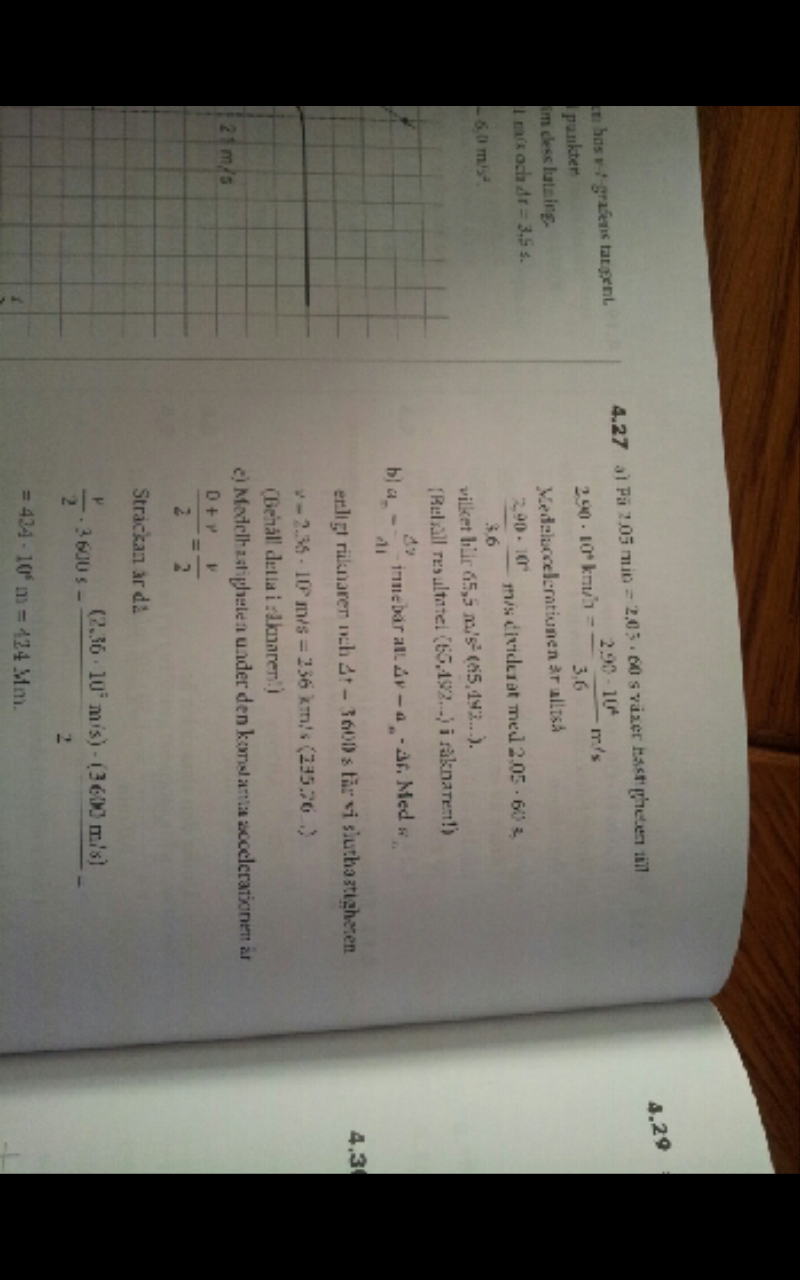 en hos v-t-grafens tangent
punkten
m dess lutning.
m/s och Δt = 3,5 s.
– 6,0 m/s²
21 m/s
t
4.27 a) På 2,05 min = 2,05 · 60 s växer hastigheten till
2,90 · 10⁴ km/h = 2,90 · 10⁴ / 3,6 m/s
Medelaccelerationen är alltså
2,90 · 10⁴ / 3,6 m/s dividerat med 2,05 · 60 s,
vilket blir 65,5 m/s² (65,492...).
(Behåll resultatet (65,492...) i räknaren!)
b) aₘ = Δv / Δt innebär att Δv = aₘ · Δt. Med aₘ
enligt räknaren och Δt = 3 600 s får vi sluthastigheten
v = 2,36 · 10⁵ m/s = 236 km/s (235,76...)
(Behåll detta i räknaren!)
c) Medelhastigheten under den konstanta accelerationen är
0 + v / 2 = v / 2
Sträckan är då
v / 2 · 3 600 s = (2,36 · 10⁵ m/s) · (3 600 m/s) / 2 =
= 424 · 10⁶ m = 424 Mm.
4.29
4.3